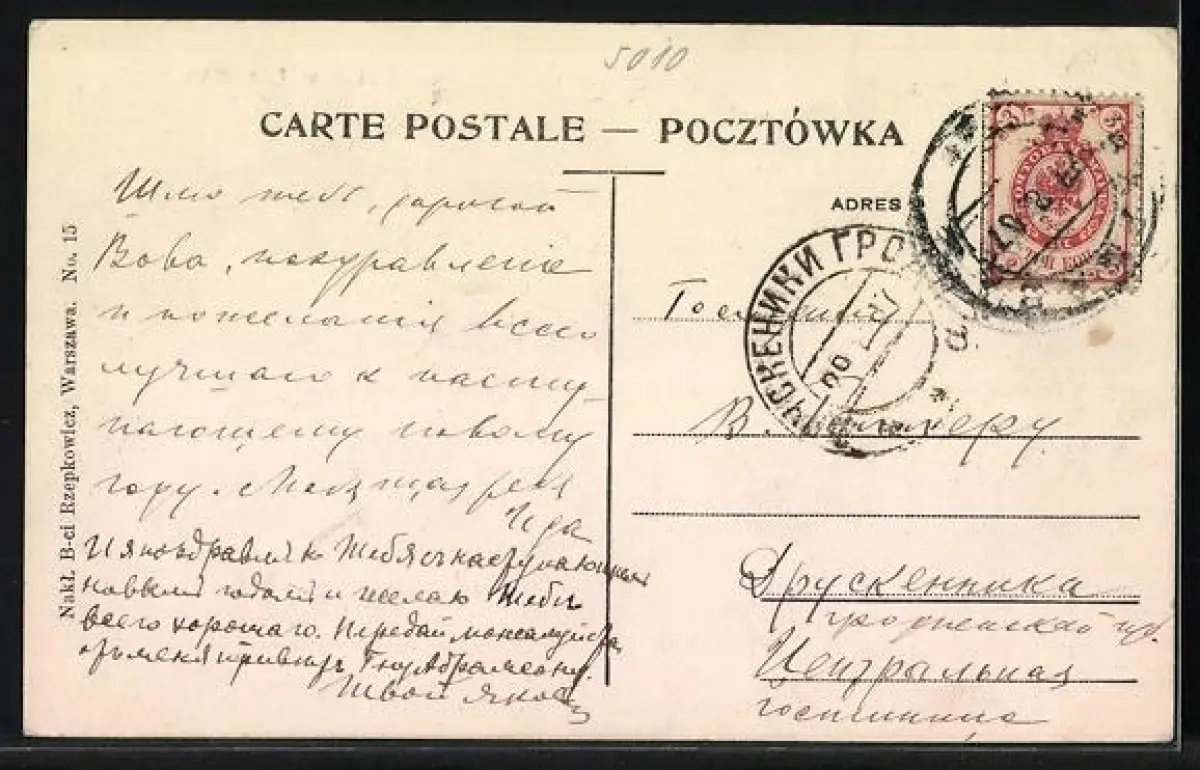 5010
CARTE POSTALE — POCZTÓWKA
ADRES
Nakł. B-ci Rzepkowicz, Warszawa. No. 15
Шлю тебе, дорогой
Вова, поздравление
и пожелания всего
лучшаго к насту
пающему новому
году.
Ида
И я поздравляю Тебя с наступающим
новым годом и желаю Тебе
всего хорошаго. Передай пожалуйста
от меня привет
Твой Яков
ДРУСКЕНИКИ ГРО
Господину
В.
Друскенники
гродненской губ.
Центральная
гостинница